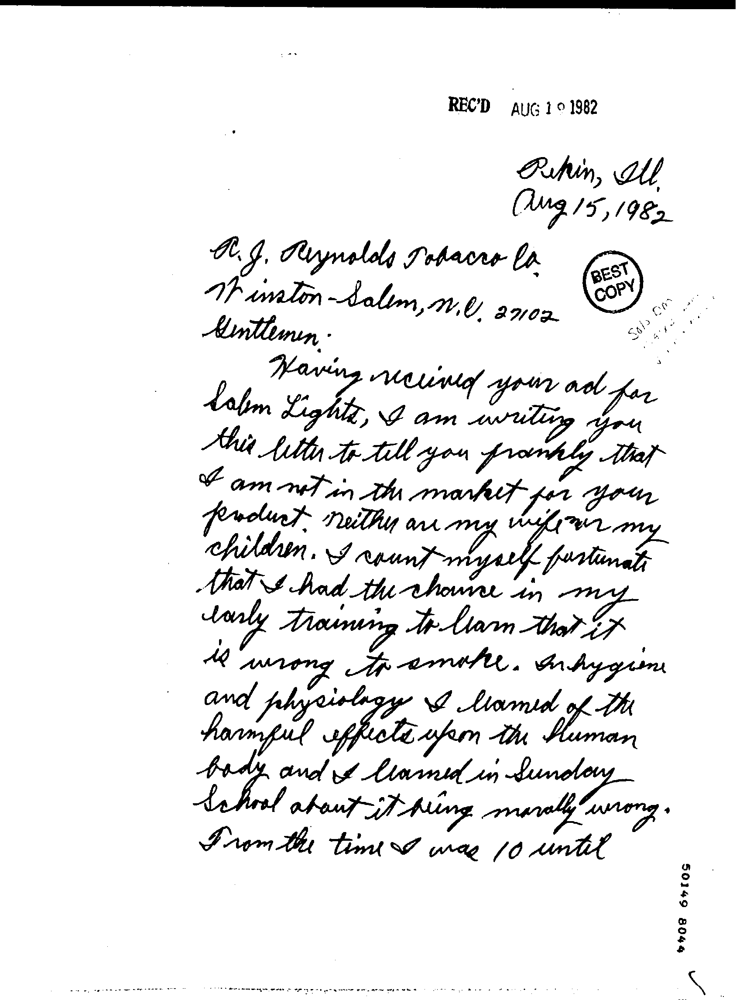 REC'D AUG 19 1982
Pekin, Ill.
Aug 15, 1982
R. J. Reynolds Tobacco Co.
Winston-Salem, N.C. 27102
BEST
COPY
Gentlemen:
Having received your ad for
Salem Lights, I am writing you
this letter to tell you frankly that
I am not in the market for your
product. Neither are my wife nor my
children. I count myself fortunate
that I had the chance in my
early training to learn that it
is wrong to smoke. In hygiene
and physiology I learned of the
harmful effects upon the human
body and I learned in Sunday
School about it being morally wrong.
From the time I was 10 until
50149 8044